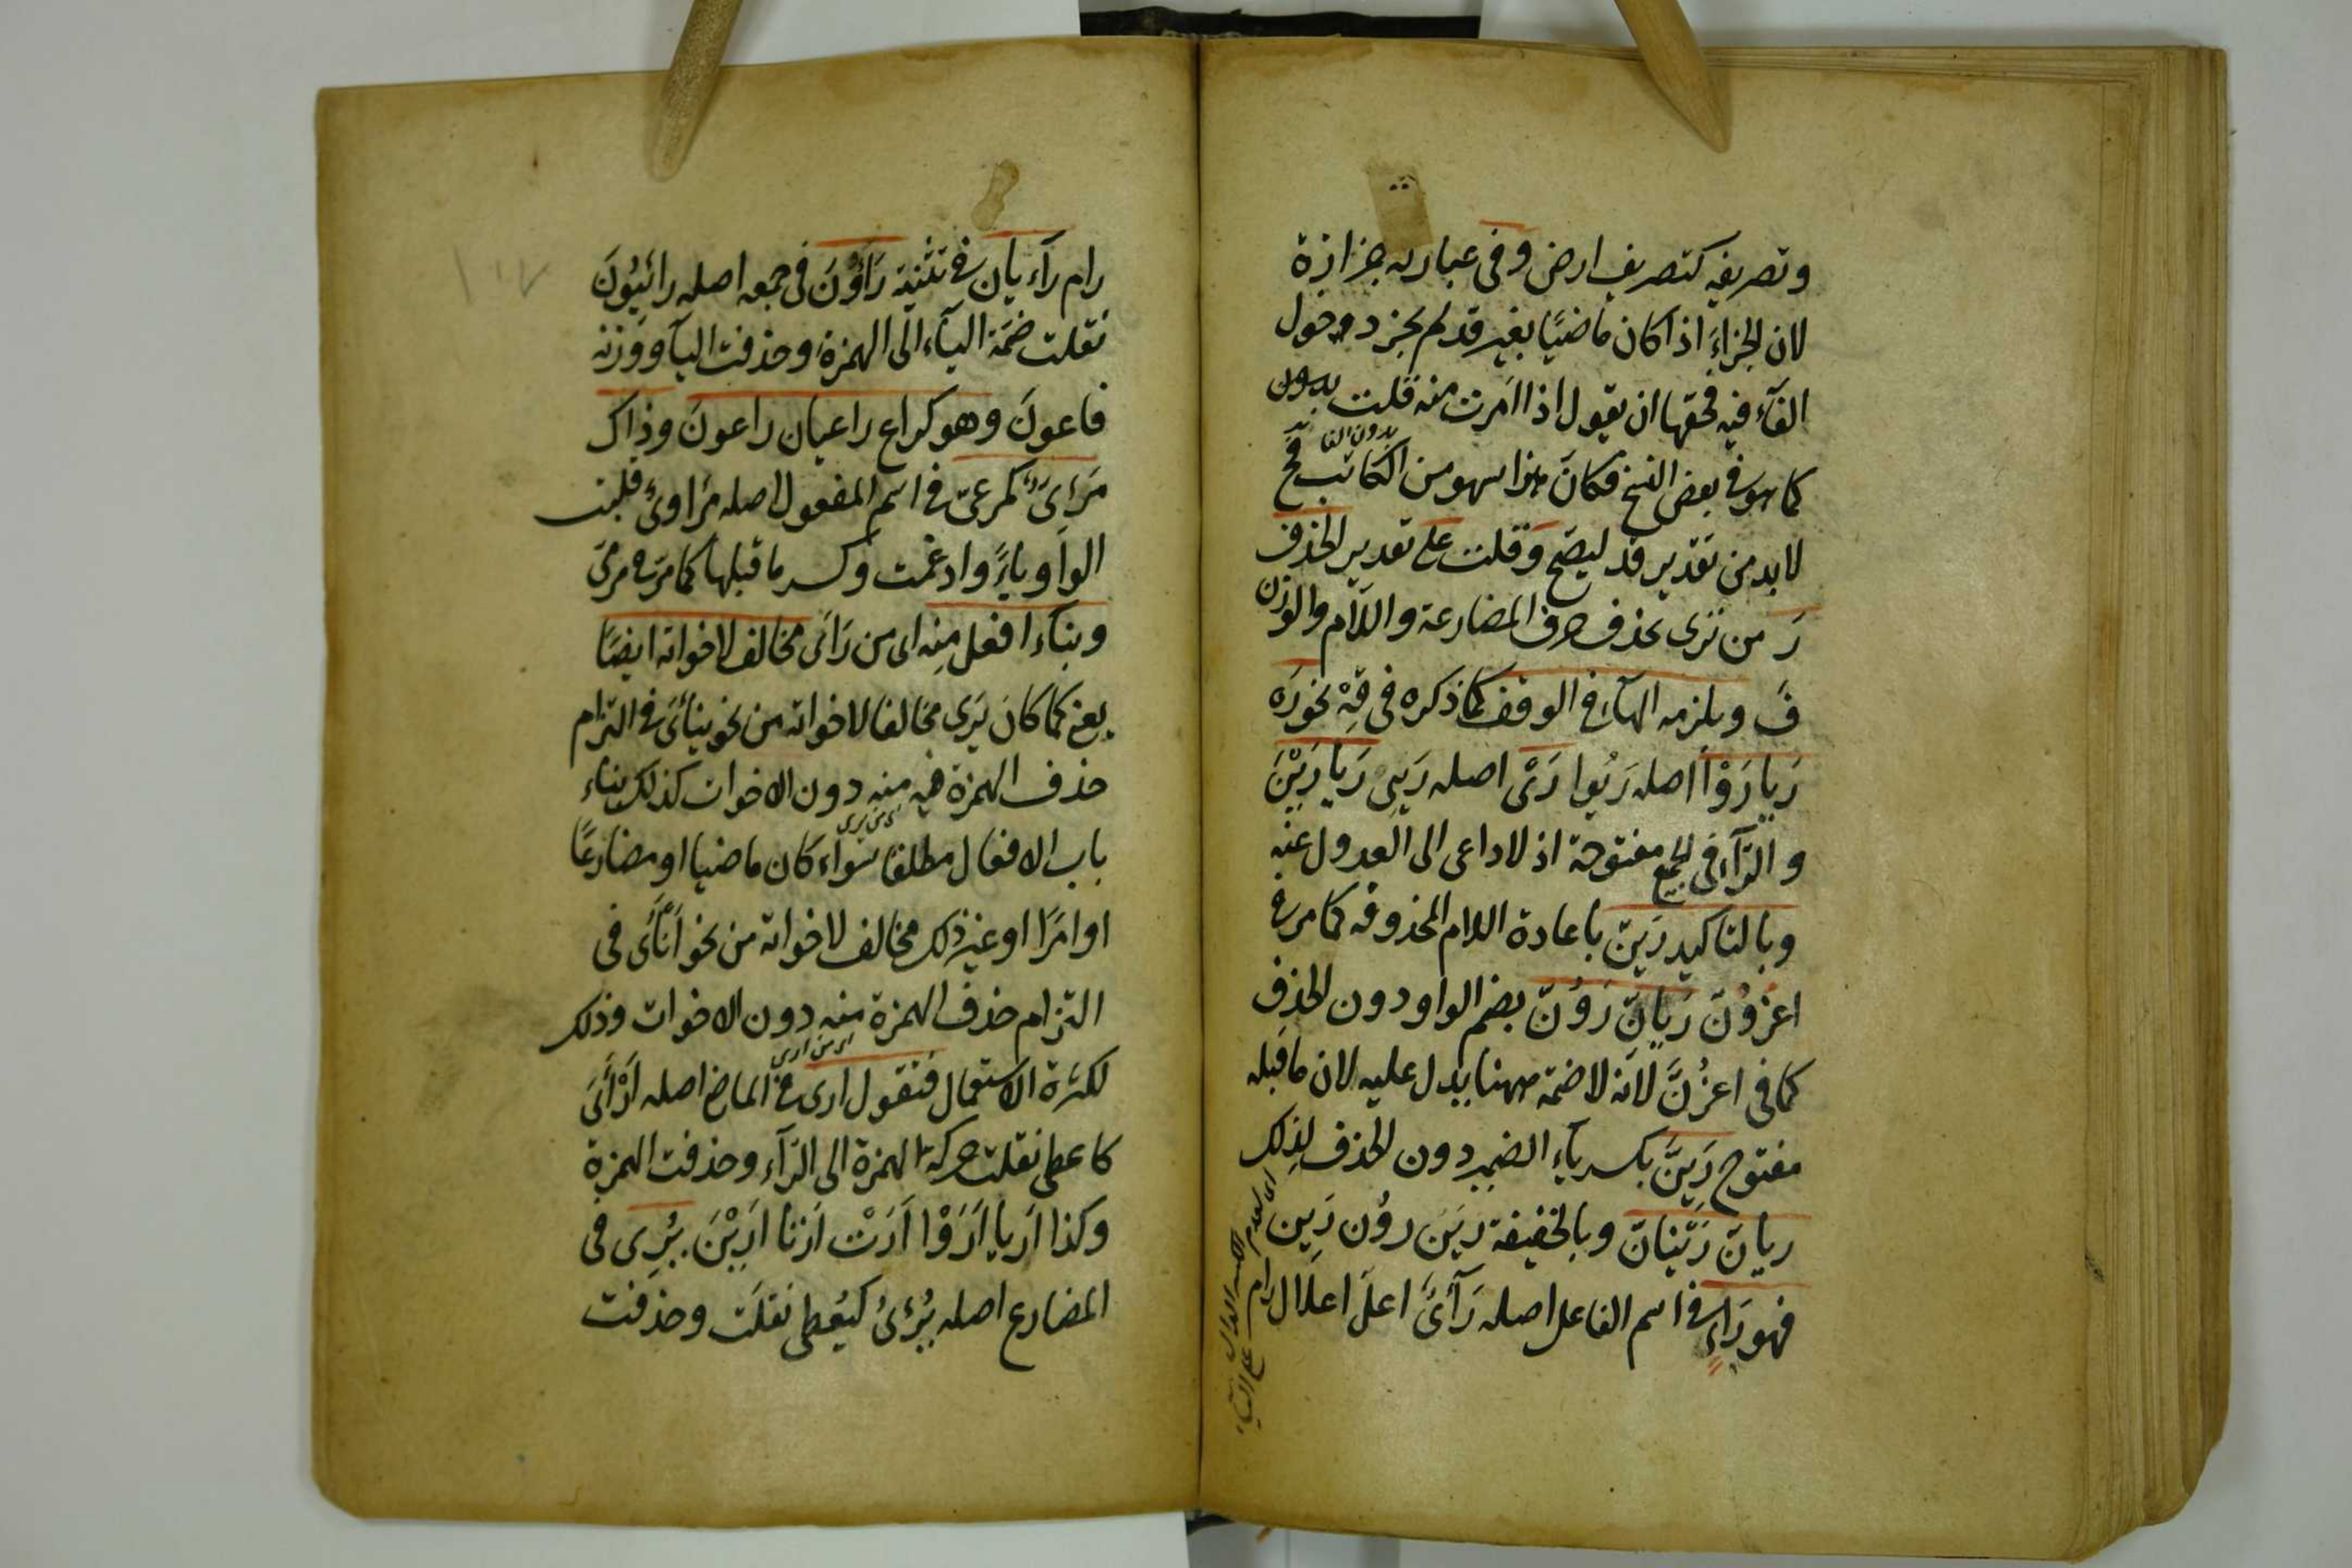 وتصريفه كتصريف ارض وفى عبارته حزازة
لان الجزاءَ اذا كان ماضيًا بغير قد لم يجز دخول
الفآء فيه فحقها ان يقول اذا امرت منه قلت بدون
بدون الفا
كما هو في بعض النسخ فكانَ هذا سهو من الكاتب فح
لابد من تقدير قد ليصحّ وقلت على تقدير الحذف
رَ من ترى بحذف حرف المضارعة واللّام والوزن
فَ ويلزمه الهآء في الوقف كما ذكره فى قِهْ نحو رَه
رَيا رَوْا اصله رَيُوا رَىْ اصله رَيِى رَيا رَيْنَ
والرّآء فى الجمع مفتوحة اذ لا داعى الى العدول عنه
وبالتاكيد رَيَنّ باعادة اللام المحذوفه كما مر في
اغزُوَنّ رَيانّ رَوُنّ بضم الواو دون الحذف
كما فى اغزُنَّ لانّه لا ضمّة ههنا يدل عليه لان ما قبله
مفتوح رَيِنَّ بكسر ياء الضمير دون الحذف لذلك
ريانّ رَيْنانّ وبالخفيفة رَيَنَ روُن رَيِن
فهو رَاءٍ في اسم الفاعل اصله رَآئىٌ اعلّ اعلال رام
اى لعدم الكسر الدال على الياء
رام رآءيان في تثنية رَاؤُنَ فى جمعه اصله رائيُونَ
نقلت ضمّة اليآء الى الهمزة وحذفت اليآ ووزنه
فاعونَ وهو كراع راعيان راعونَ وذاك
مَرْئىٌ كمرعىّ في اسم المفعول اصله مرْاوىٌ قلبت
الواو ياءً وادغمت وكسر ما قبلها كما مرّ في مرمى
وبناء افعل منِه اى من رَأى مخالف لاخواته ايضًا
يعنى كما كانَ يَرَى مخالفا لاخواته من نحو ينائَى في التزام
حذف الهمزة فيه منه دون الاخوات كذلك بناء
اى من يرى
باب الافعال مطلقا سوآء كان ماضيا او مضارعًا
او امرًا او غير ذلك مخالف لاخواته من نحو اَنْأَى فى
التزام حذف الهمزة منه دون الاخوات وذلك
اى من ارى
لكثرة الاستعمال فتقول ارى في الماضى اصله اَرْأَىَ
كاعطى نقلت حركة الهمزة الى الرّآء وحذفت الهمزة
وكذا اَرَيا اَرَوْا اَرَتْ اَرَتا اَرَيْنَ يُرِى فى
المضارع اصله يُرْئىُ كيُعْطى نقلت وحذفت